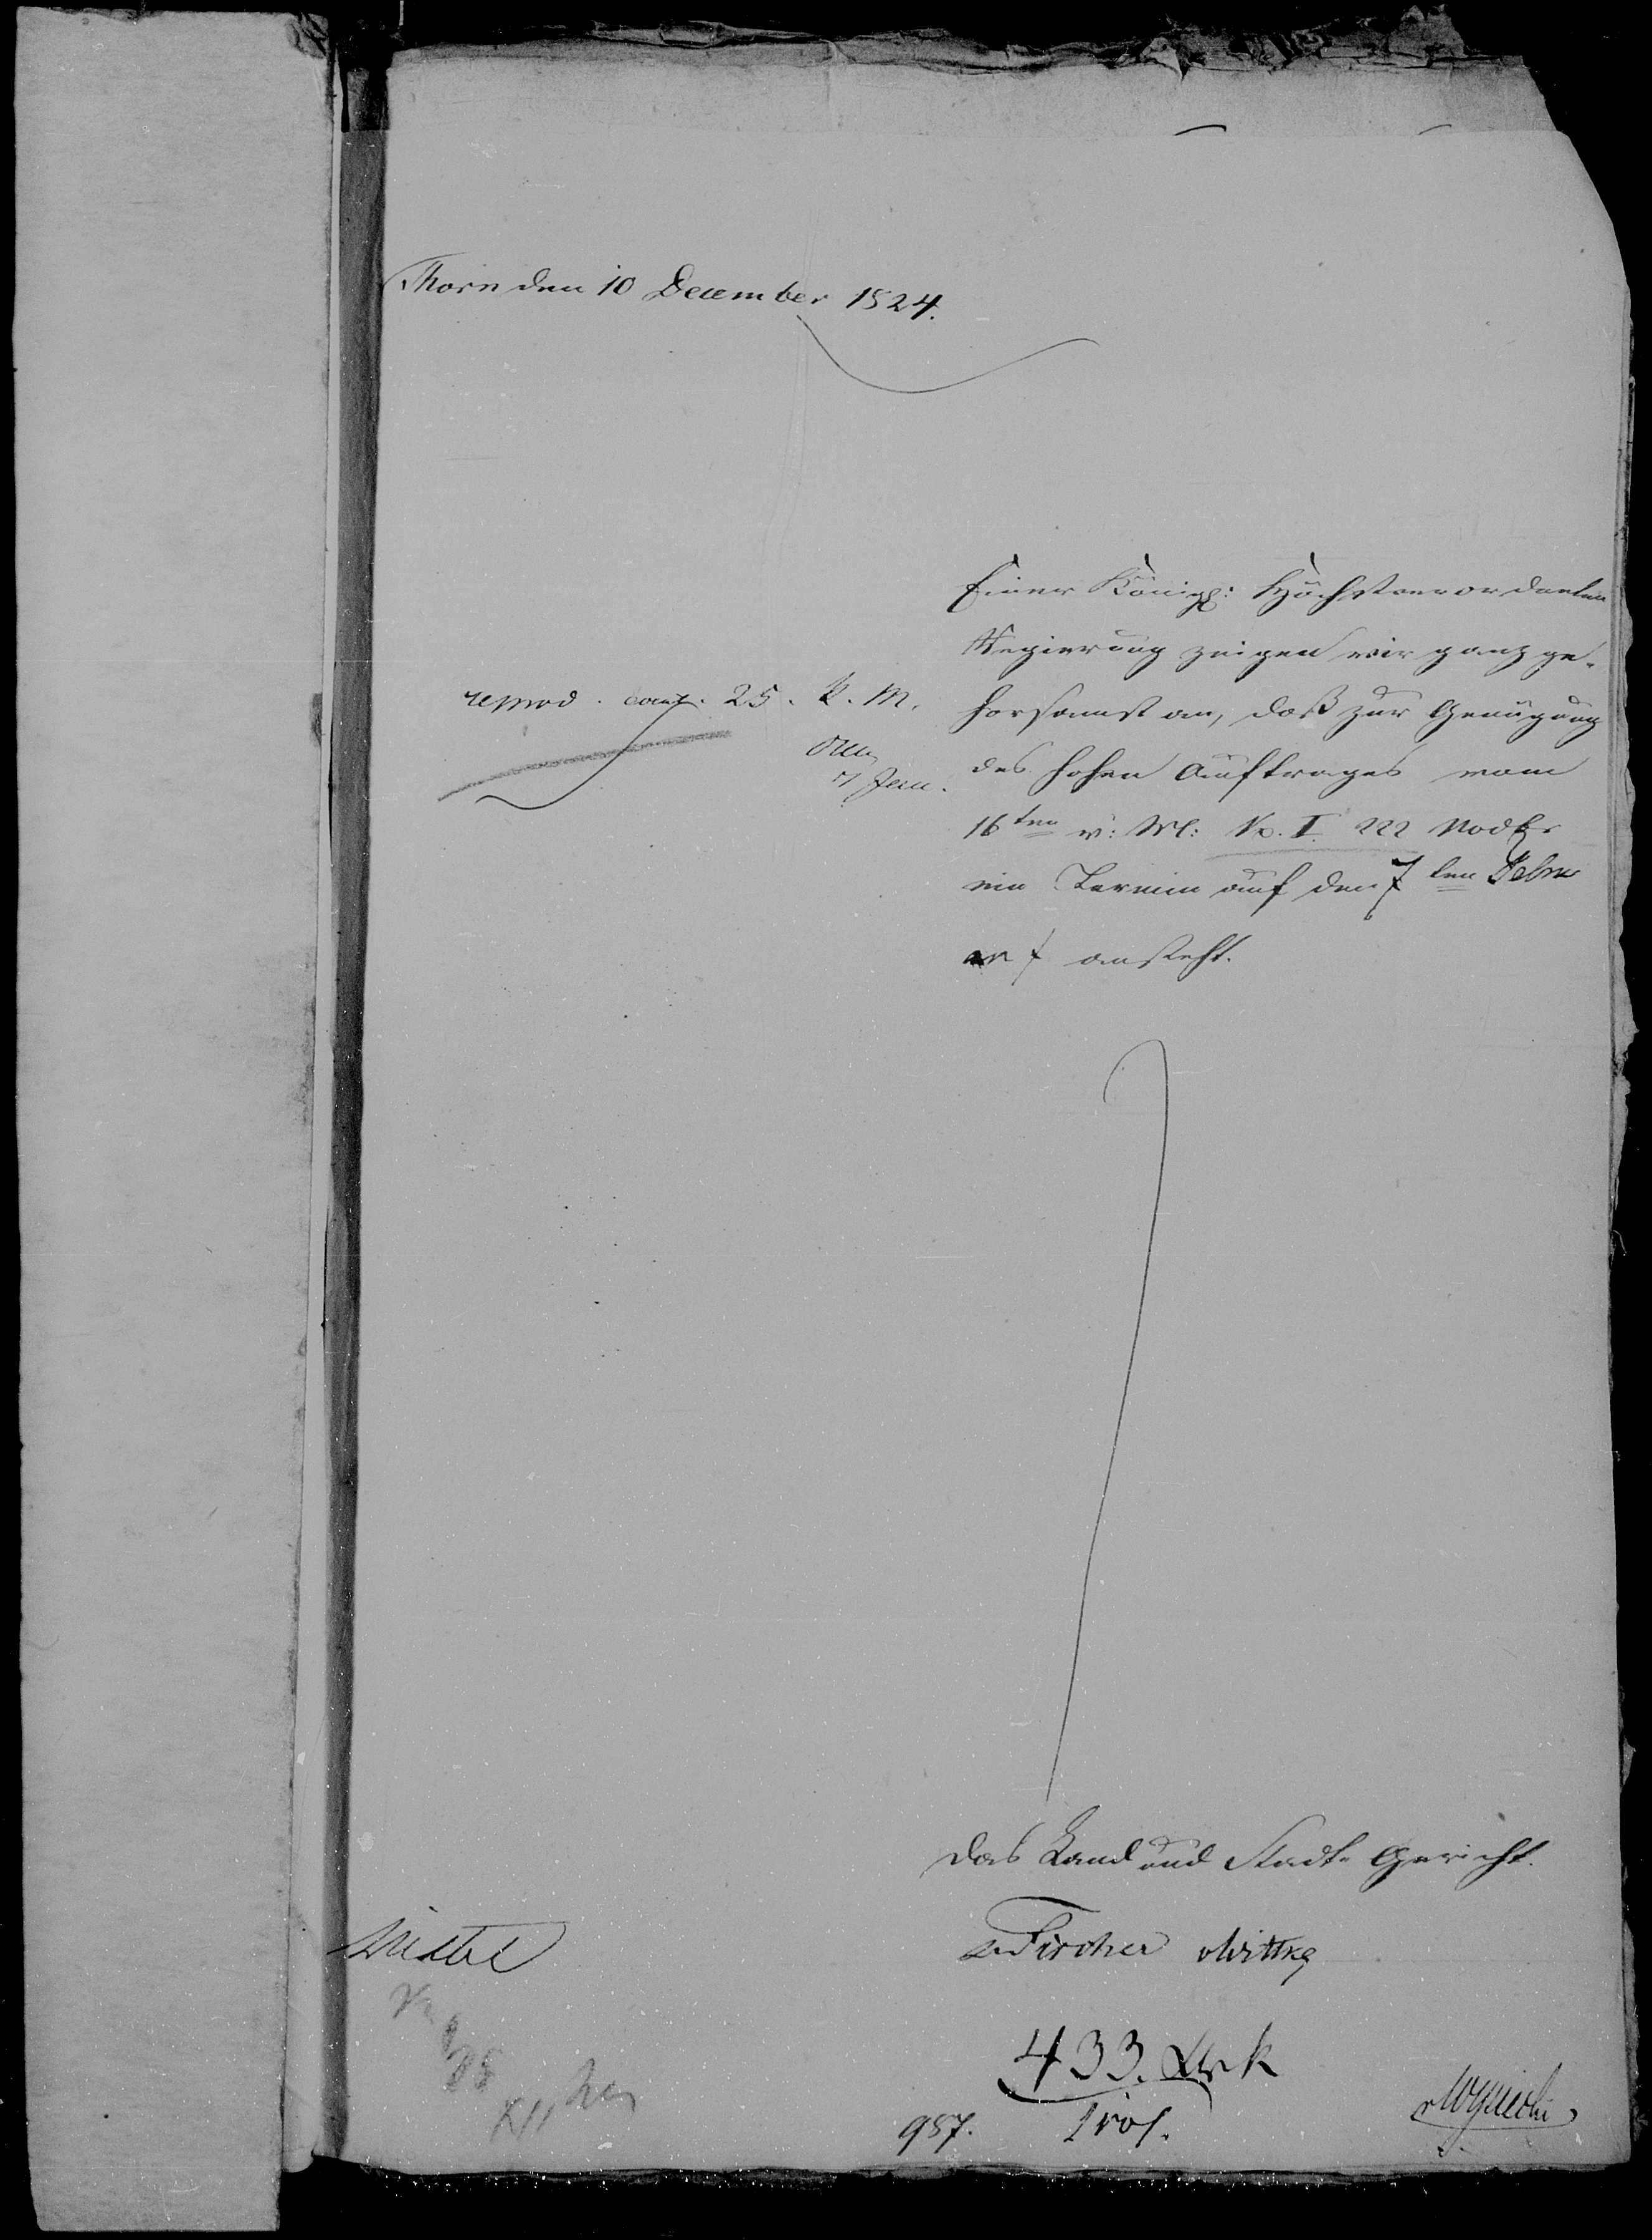 Thorn den 10 December 1824.
Einer Königl: Höchstverordneten
Regierung zeigen wir ganz ge-
horsamst an, daß zur Genügung
des hohen Auftrages vom
16ten v: M: No. I. 222 Nodbr
ein Termin auf den 7ten Febru
ansteht.
reprod. 25. k. M.
7 Jan.
Das Land und Stadt-Gericht.
Fischer Wittke
433.
987.